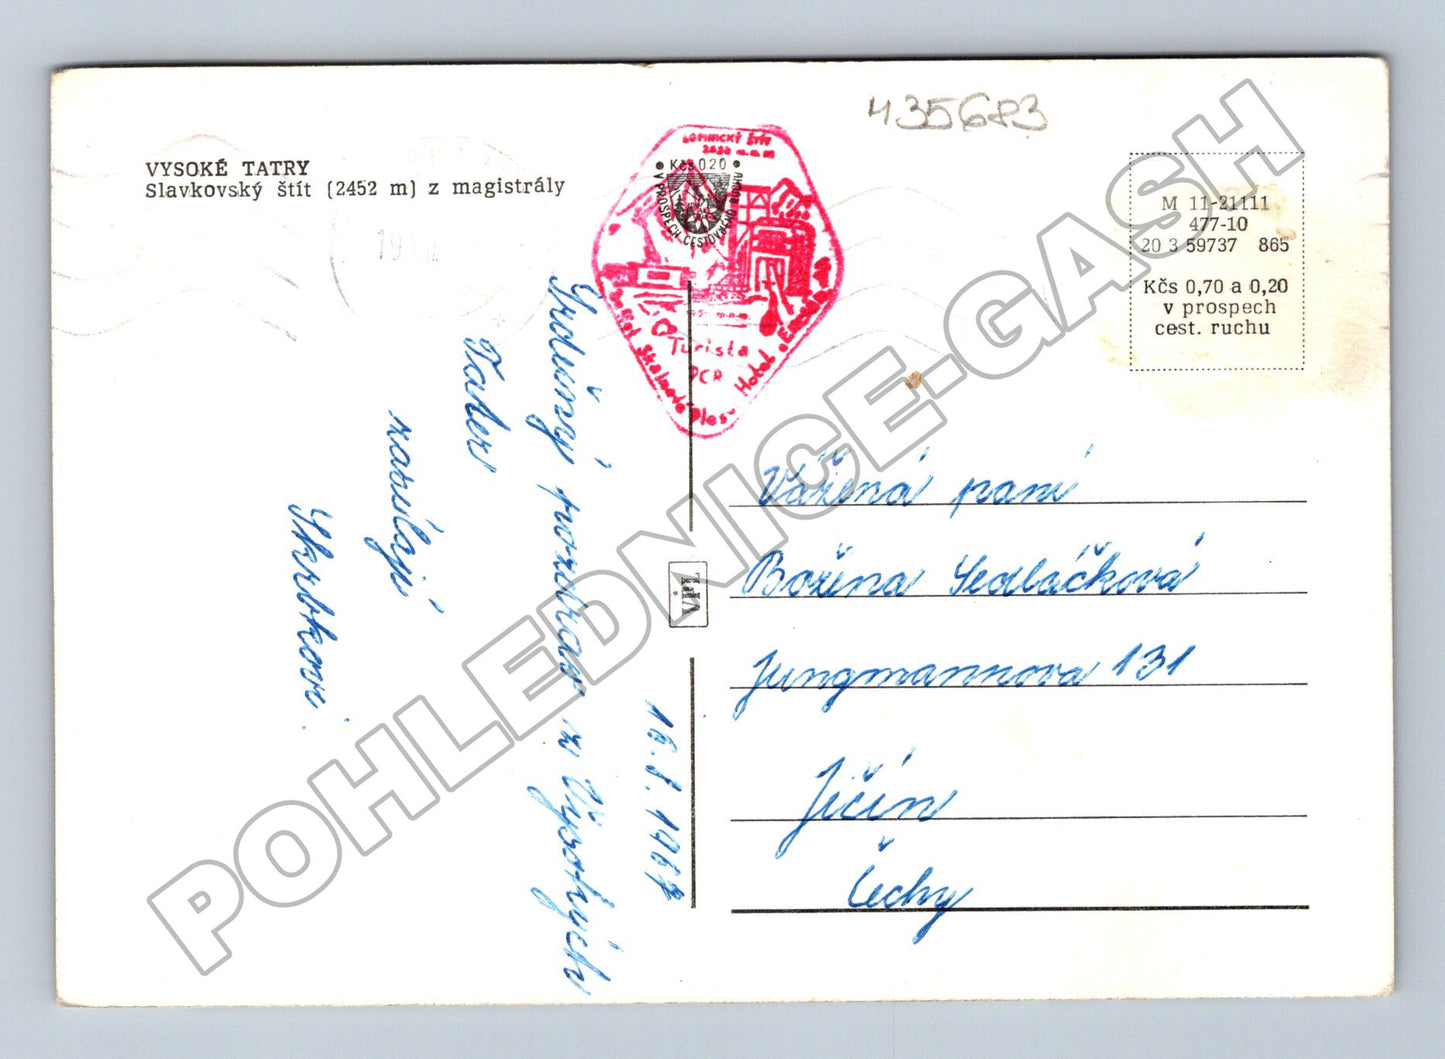 435683
VYSOKÉ TATRY
Slavkovský štít (2452 m) z magistrály
LOMNICKÝ ŠTÍT
Kčs 0,20
V PROSPECH CESTOVNÉHO RUCHU
Turista
Hotel
M 11-21111
477-10
20 3 59737 865
Kčs 0,70 a 0,20
v prospech
cest. ruchu
Srdečný pozdrav z Vysokých
Tater
zasílají
Skrbkovi.
16.8.1967
Vážená paní
Božena Sedláčková
Jungmannova 131
Jičín
Čechy
POHLEDNICE-GASH